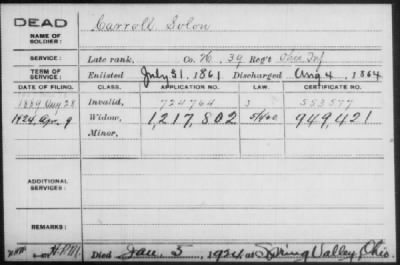 DEAD
Carroll Solon
NAME OF SOLDIER:
SERVICE: Late rank, Co. K, 39 Reg't Ohio Inf
TERM OF SERVICE: Enlisted July 31, 1861 Discharged Aug 4, 1864
DATE OF FILING. CLASS. APPLICATION NO. LAW. CERTIFICATE NO.
1889 Aug 28 Invalid, 724764 583577
1924 Apr 9 Widow, 1,217,802 949,421
Minor,
ADDITIONAL SERVICES:
REMARKS:
Died Jan. 5, 1924, at Spring Valley, Ohio.